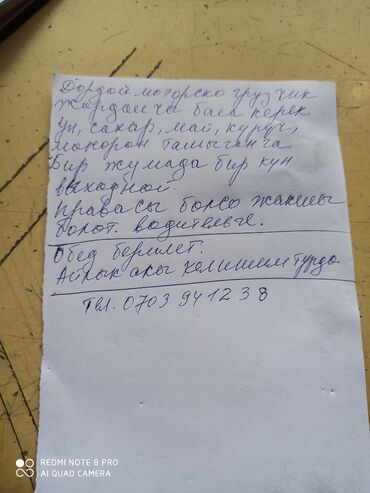 Дордой моторско грузчик
жардамчы бала керек
Ун, сахар, май, куруч,
мокорон ташыганга
Бир жумада бир кун
выходной.
Правасы болсо жакшы
болот. водительге.
Обед берилет.
Айлык акы келишим турдо
Тел. 0703 941238
REDMI NOTE 8 PRO
AI QUAD CAMERA